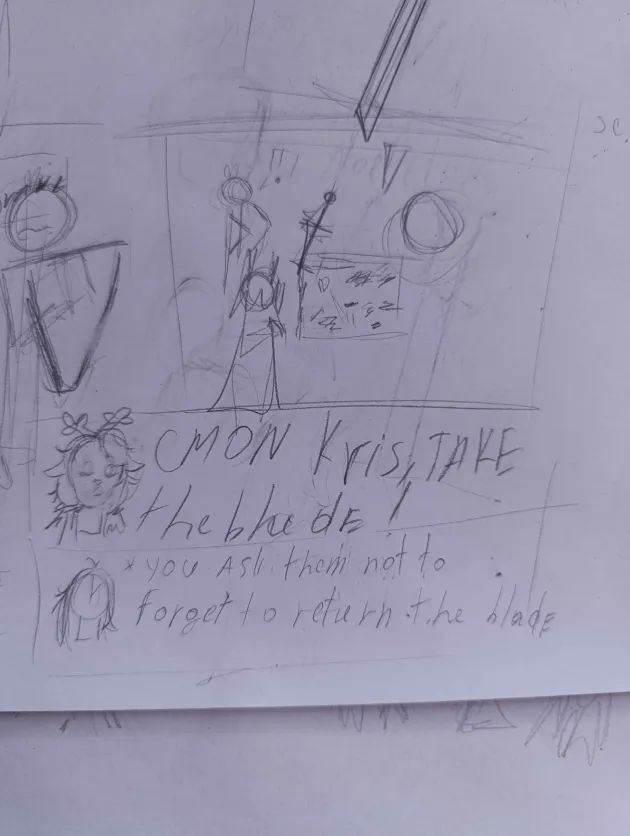 !!
CMON Kris, TAKE
the blade !
* you Ask them not to
forget to return the blade